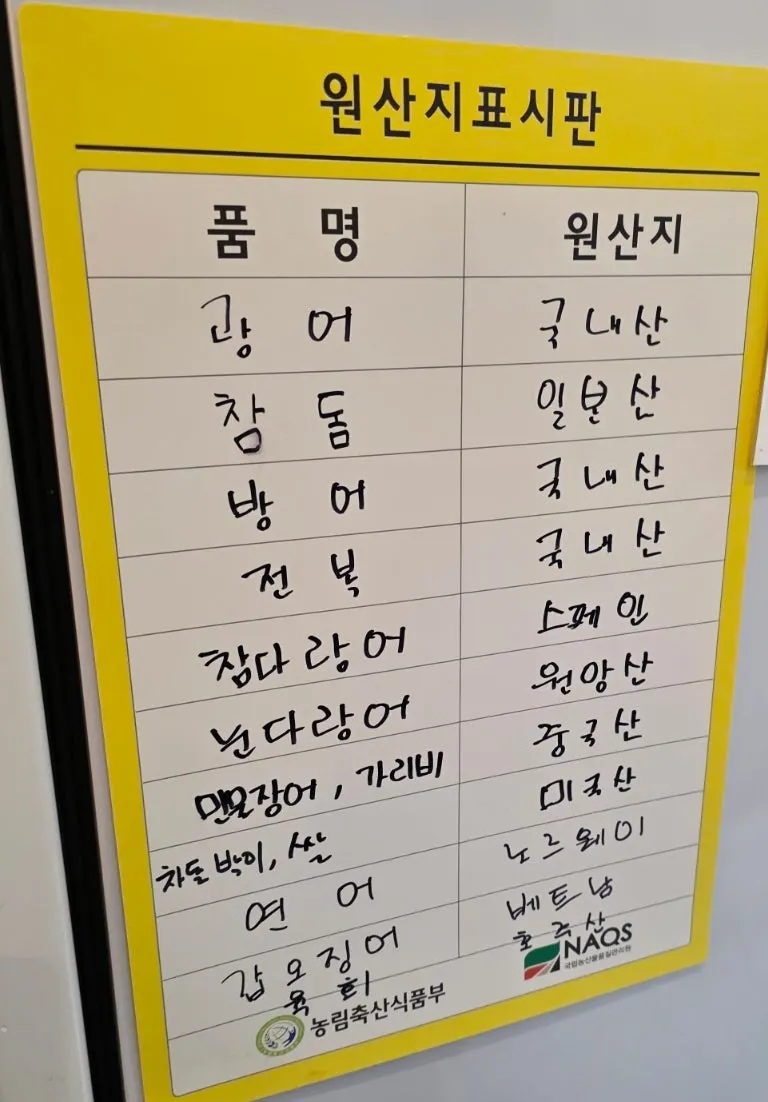 원산지표시판
품 명 원산지
광 어 국내산
참 돔 일본산
방 어 국내산
전 복 국내산
참다랑어 스페인
눈다랑어 원양산
민물장어, 가리비 중국산
차돌박이, 쌀 미국산
연 어 노르웨이
갑오징어 베트남
육 회 호주산
농림축산식품부 NAQS
국립농산물품질관리원